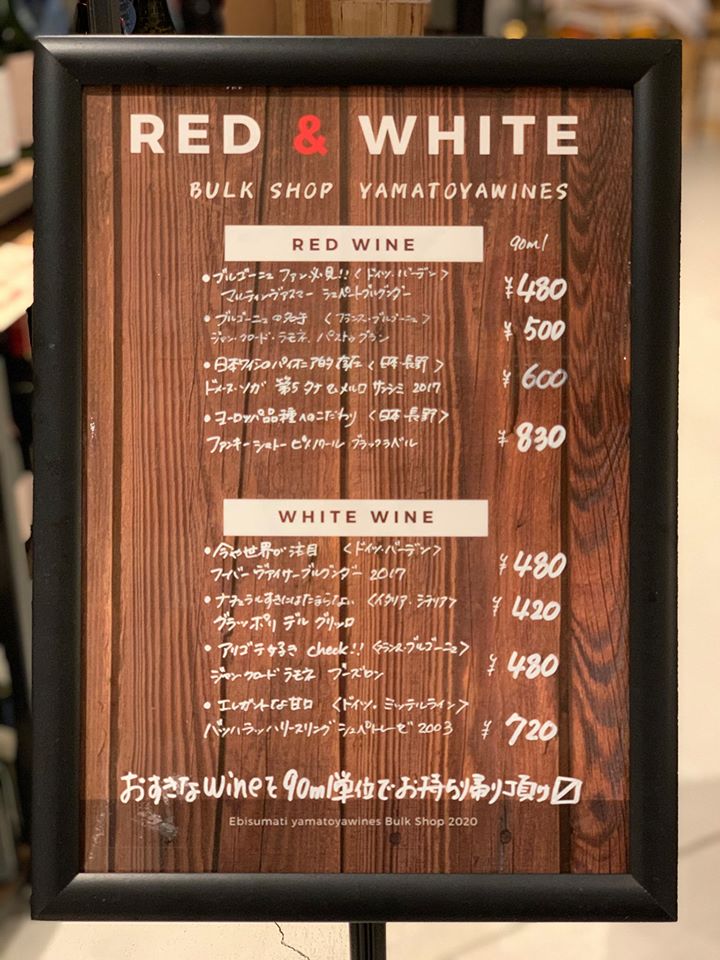 RED & WHITE
BULK SHOP YAMATOYAWINES
RED WINE 90ml
•ブルゴーニュファン必見!!〈ドイツ・バーデン〉
マルティンヴァスマー シュペートブルグンダー ¥480
•ブルゴーニュの名手 〈フランス・ブルゴーニュ〉
ジャン・クロード・ラモネ、パストゥグラン ¥500
•日本ワインのパイオニア的存在〈日本・長野〉
ドメーヌ・ソガ 第5 タナ&メルロ サンシミ 2017 ¥600
•ヨーロッパ品種へのこだわり 〈日本・長野〉
ファンキーシャトー ピノノワール ブラックラベル ¥830
WHITE WINE
•今や世界が注目 〈ドイツ・バーデン〉
フーバー ヴァイサーブルグンダー 2017 ¥480
•ナチュラルすきにはたまらない 〈イタリア・シチリア〉
グラッポリ デル グリッロ ¥420
•アリゴテ好き check!!〈フランス・ブルゴーニュ〉
ジャンクロード ラモネ ブーズロン ¥480
•エレガントな甘口 〈ドイツ・ミッテルライン〉
バッハラッハリースリング シュペトレーゼ 2003 ¥720
おすきなwineを90ml単位でお持ち帰り頂け〼
Ebisumati yamatoyawines Bulk Shop 2020